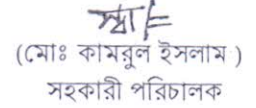 স্বাঃ/=
(মোঃ কামরুল ইসলাম )
সহকারী পরিচালক